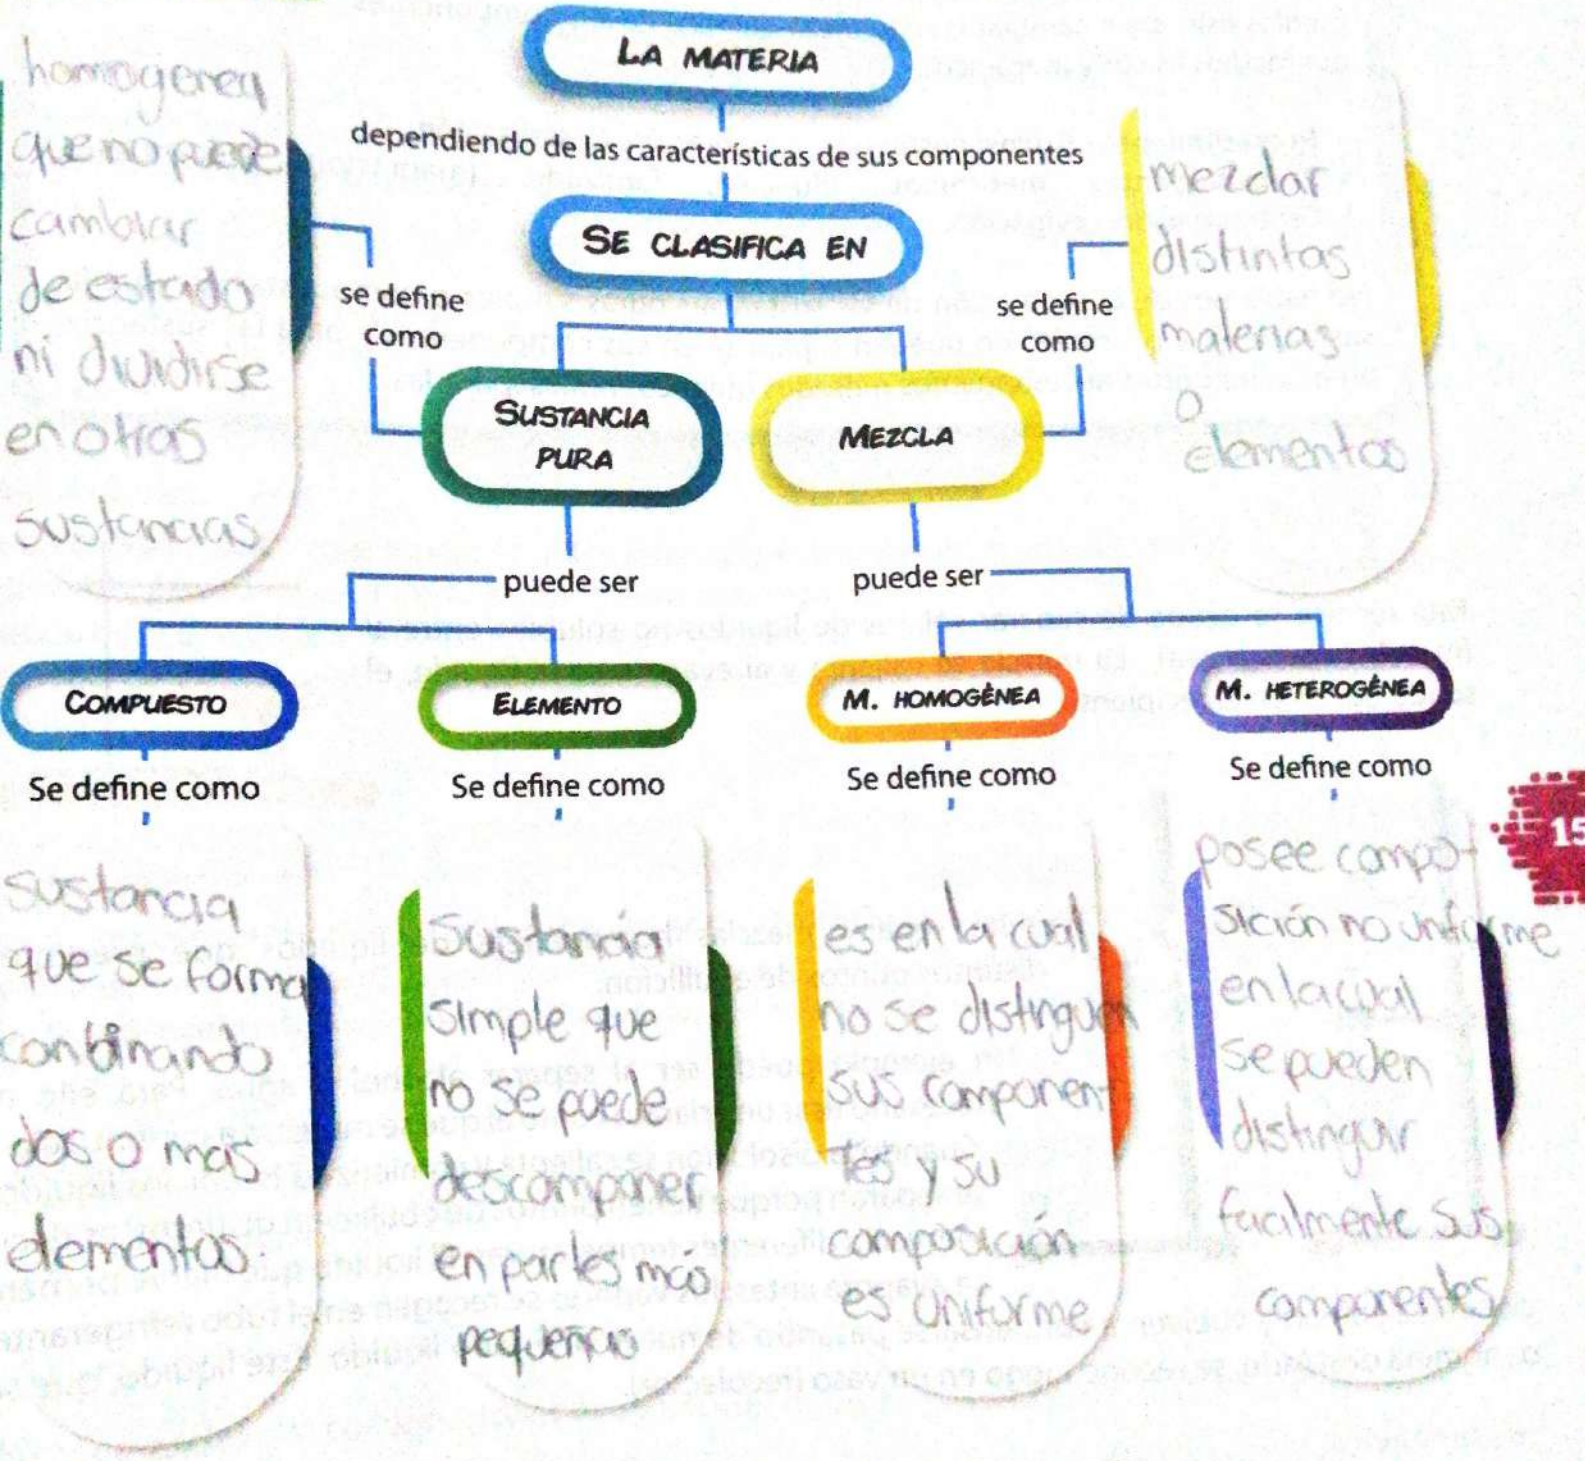 LA MATERIA
dependiendo de las características de sus componentes
SE CLASIFICA EN
homogenea
que no puede
cambiar
de estado
ni dividirse
en otras
sustancias
se define
como
SUSTANCIA
PURA
se define
como
MEZCLA
mezclar
distintas
materias
o
elementos
puede ser
puede ser
COMPUESTO
ELEMENTO
M. HOMOGÉNEA
M. HETEROGÉNEA
Se define como
Se define como
Se define como
Se define como
sustancia
que se forma
conbinando
dos o mas
elementos.
sustancia
simple que
no se puede
descomponer
en partes mas
pequeñas
es en la cual
no se distinguen
sus component
tes y su
composición
es uniforme
posee compo-
sición no uniforme
en la cual
se pueden
distinguir
facilmente sus
componentes
15